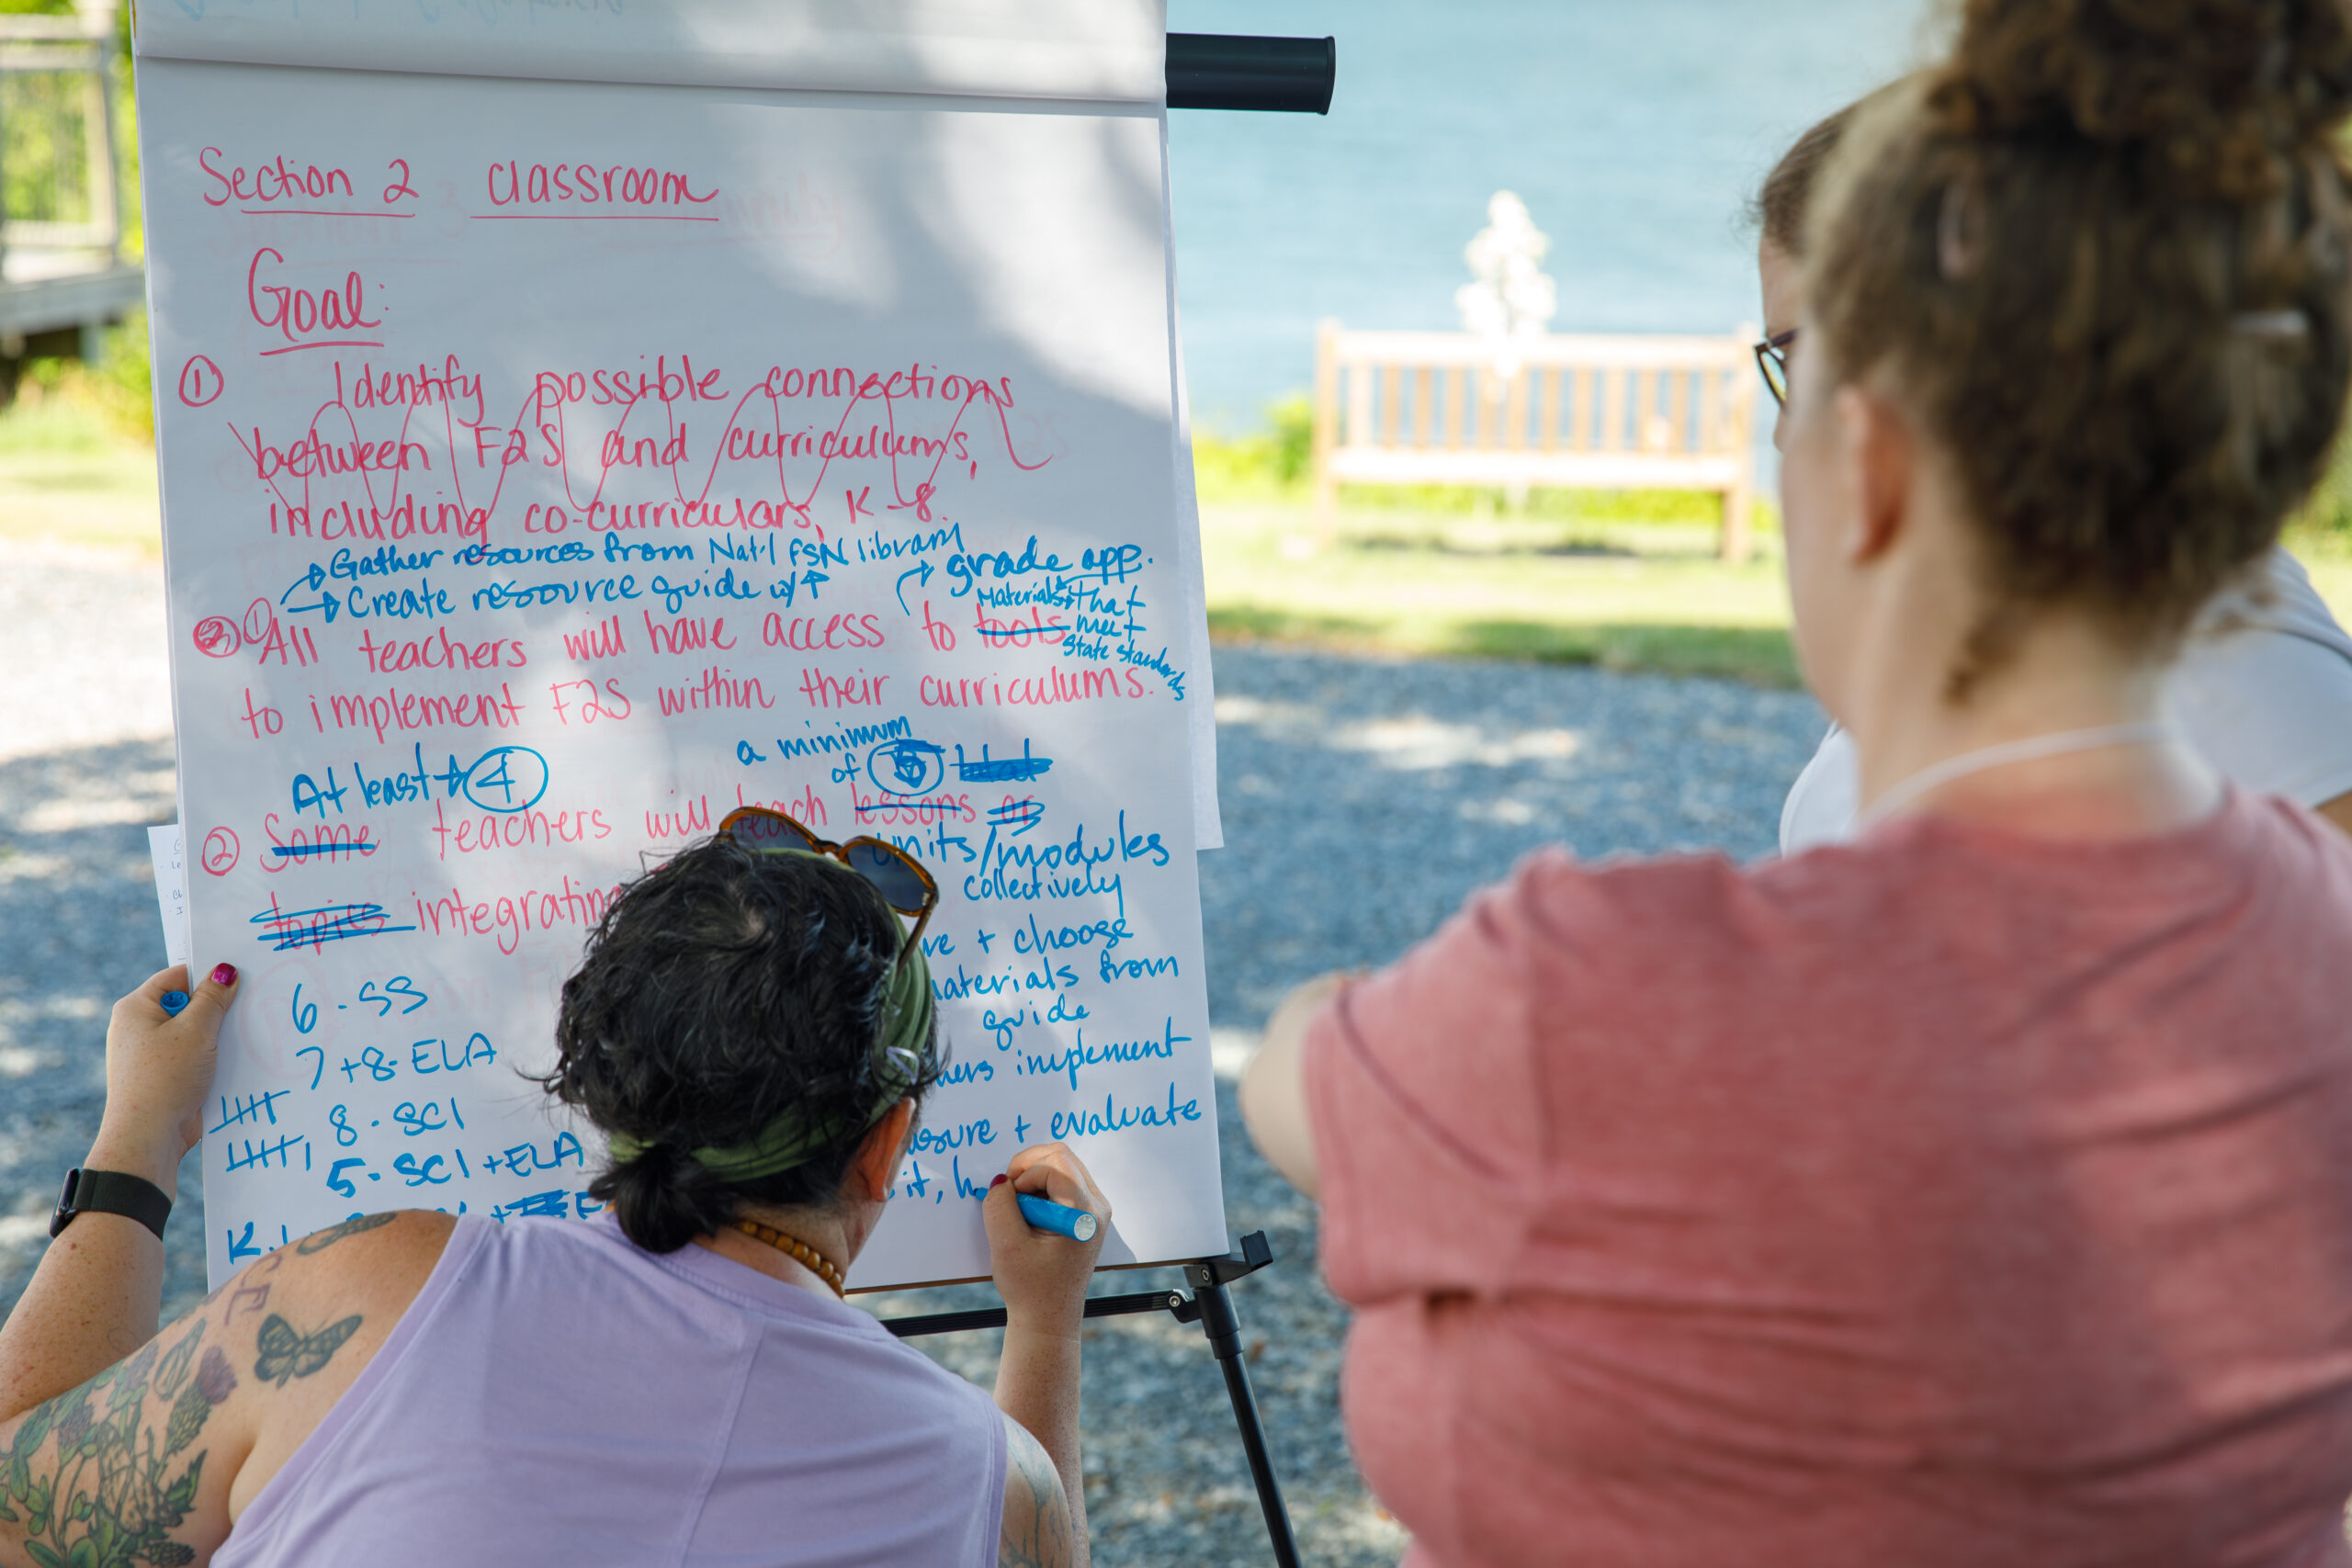 Section 2 classroom
Goal:
① Identify possible connections
between F2S and curriculums,
including co-curriculars, K-8.
→ Gather resources from Nat'l FSN library
→ Create resource guide w/↑
→ grade app.
Materials that
meet
State standards
① All teachers will have access to tools
to implement F2S within their curriculums.
At least → 4
a minimum
of
② Some teachers will teach lessons or
units/modules
collectively
topics integrating
6 - SS
7 + 8 - ELA
8 - SCI
5 - SCI + ELA
+ choose
materials from
guide
implement
+ evaluate
it,